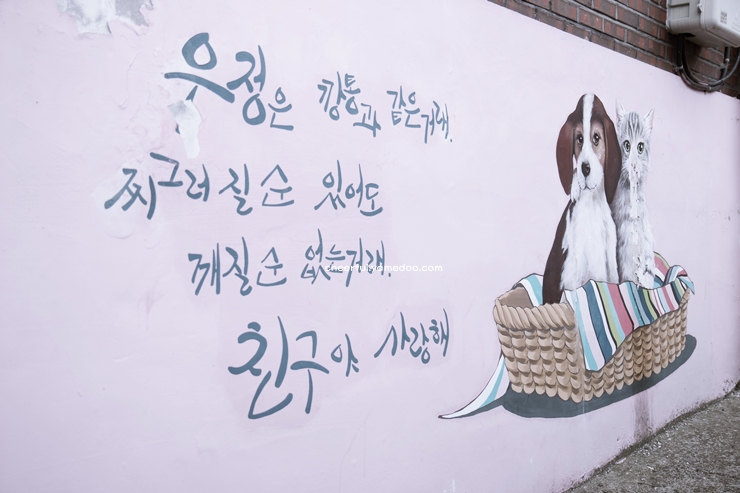 우정은 깡통과 같은거래.
찌그러질순 있어도
깨질순 없는거래.
친구야 사랑해
cheerfulyamedoo.com